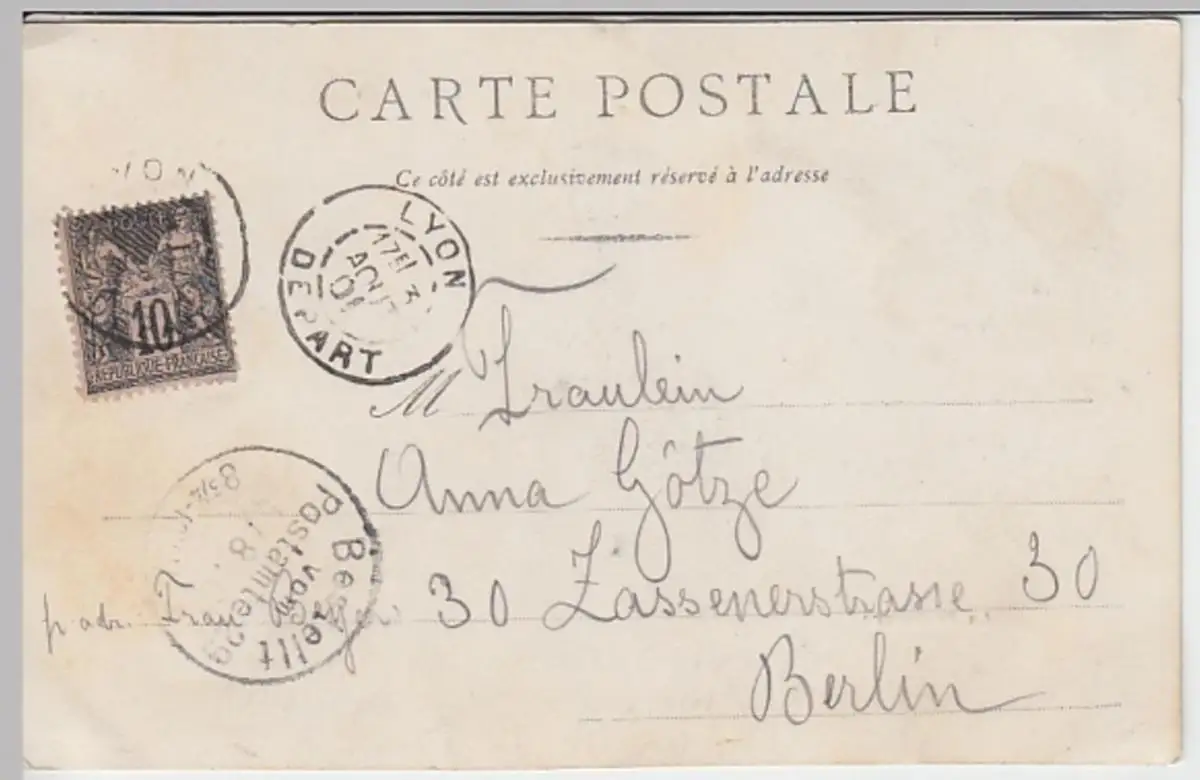 CARTE POSTALE
Ce côté est exclusivement réservé à l'adresse
10
REPUBLIQUE FRANÇAISE
LYON
DEPART
AOUT
01
M Fraulein
Anna Götze
p adr. Frau
30 Zossenerstrasse 30
Berlin
Bestellt
vom
Postamte